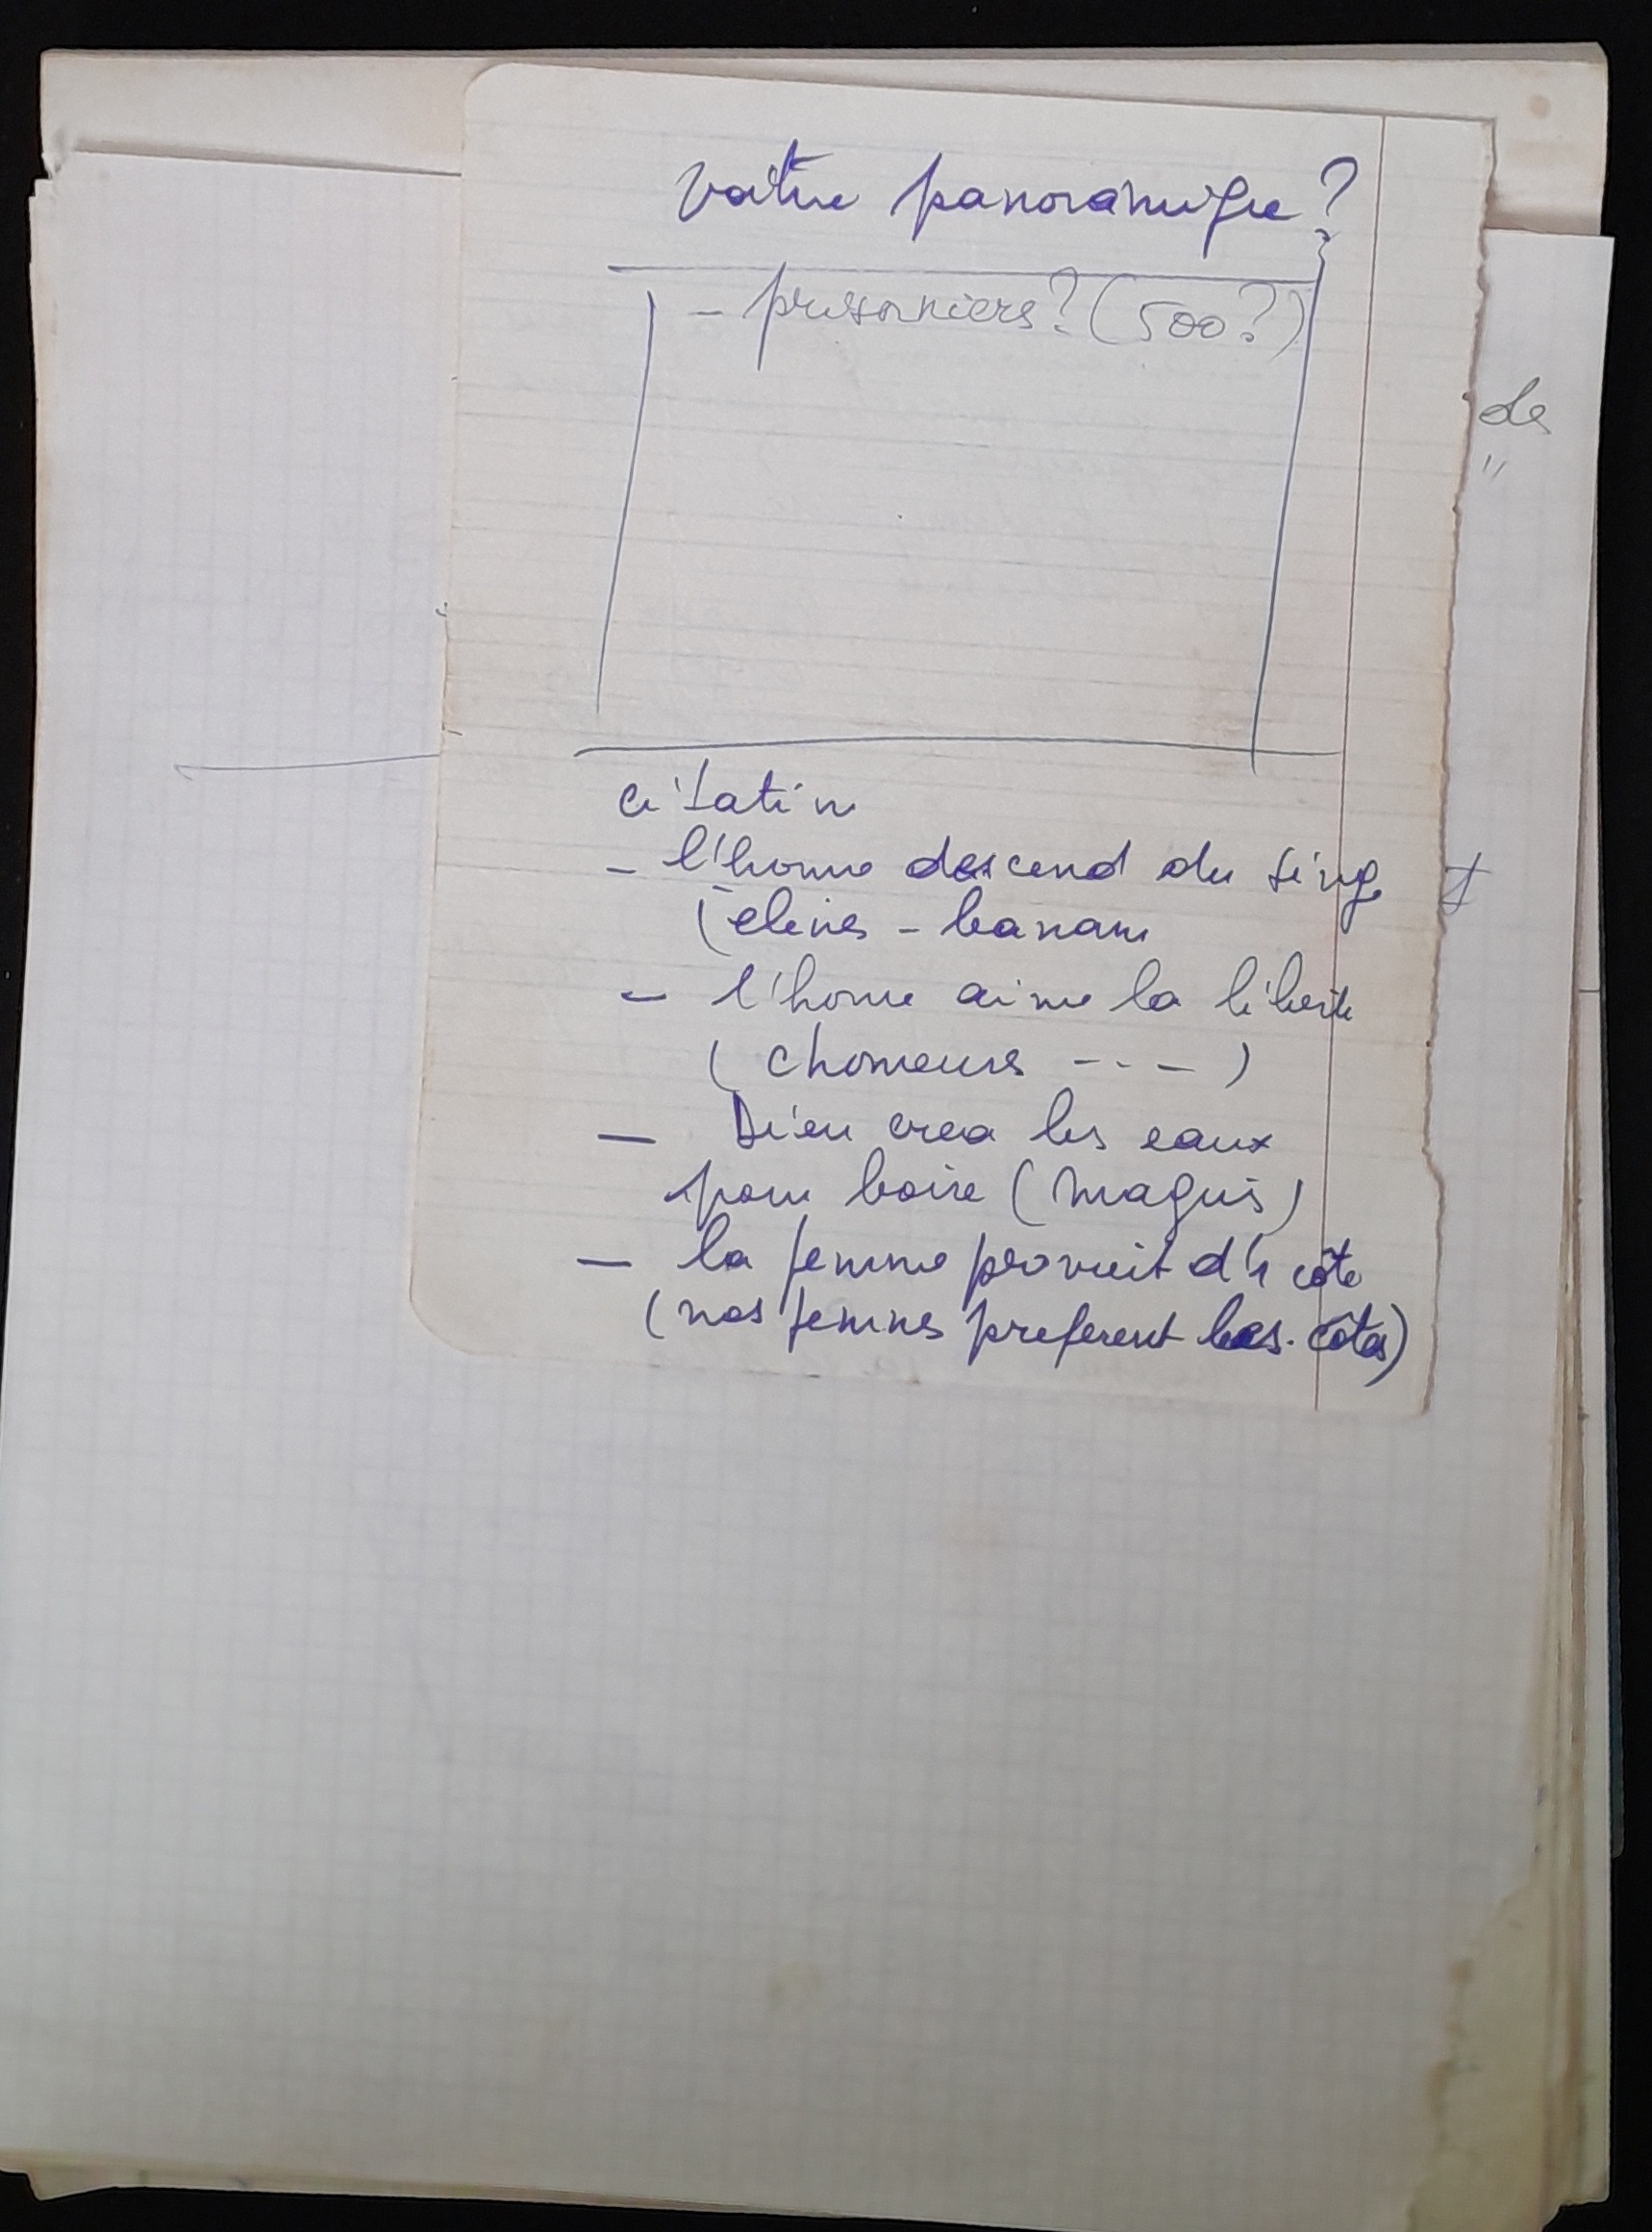 voiture panoramique?
- prisonniers? (500?)
de
"
citation
- l'home descend du singe
(eleves - banane
- l'home aime la liberte
( chomeurs - - - )
- Dieu crea les eaux
pour boire (maquis)
- la femme provient d'1 côte
(nos femmes preferent les côtes)